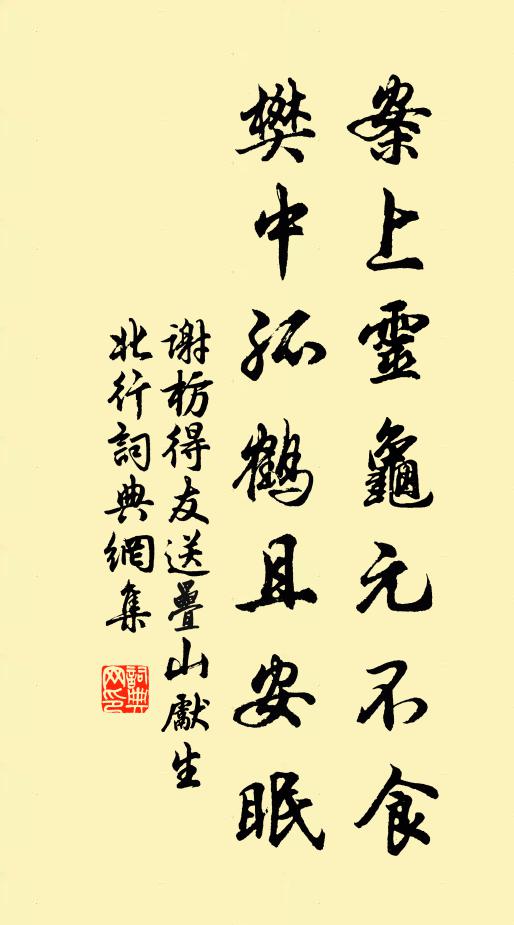 案上靈龜元不食
樊中孤鶴且安眠
謝枋得友送疊山獻生
北行詞典網集
詞典网印